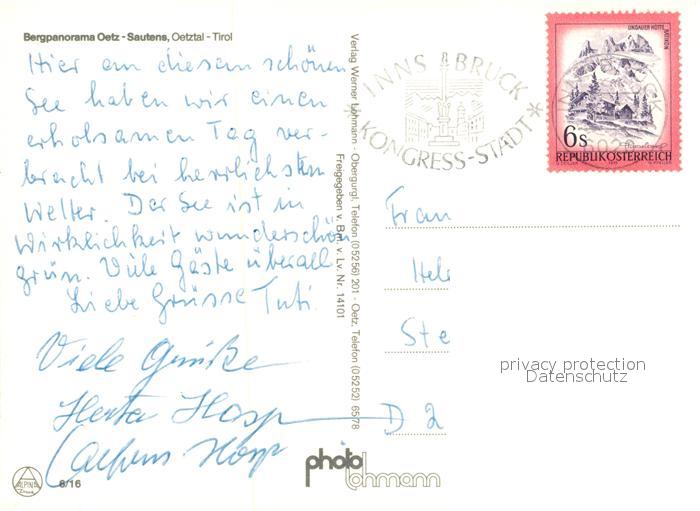 Bergpanorama Oetz - Sautens, Oetztal - Tirol
Hier an diesem schönen
See haben wir einen
erholsamen Tag ver-
bracht bei herrlichstem
Wetter. Der See ist in
Wirklichkeit wunderschön
grün. Viele Gäste überall
Liebe Grüsse Tuti.
Viele Grüße
Herta Hosp
Alfons Hosp
ALPINA
8/16
Verlag Werner Lohmann - Obergurgl, Telefon (05256) 201 - Oetz, Telefon (05252) 6578
Freigegeben v. Bm. v. Lv. Nr. 14101
photo
lohmann
INNSBRUCK
KONGRESS-STADT
LINDAUER HÜTTE
RÄTIKON
6s
REPUBLIK ÖSTERREICH
Frau
Hel
Ste
D 2
privacy protection
Datenschutz